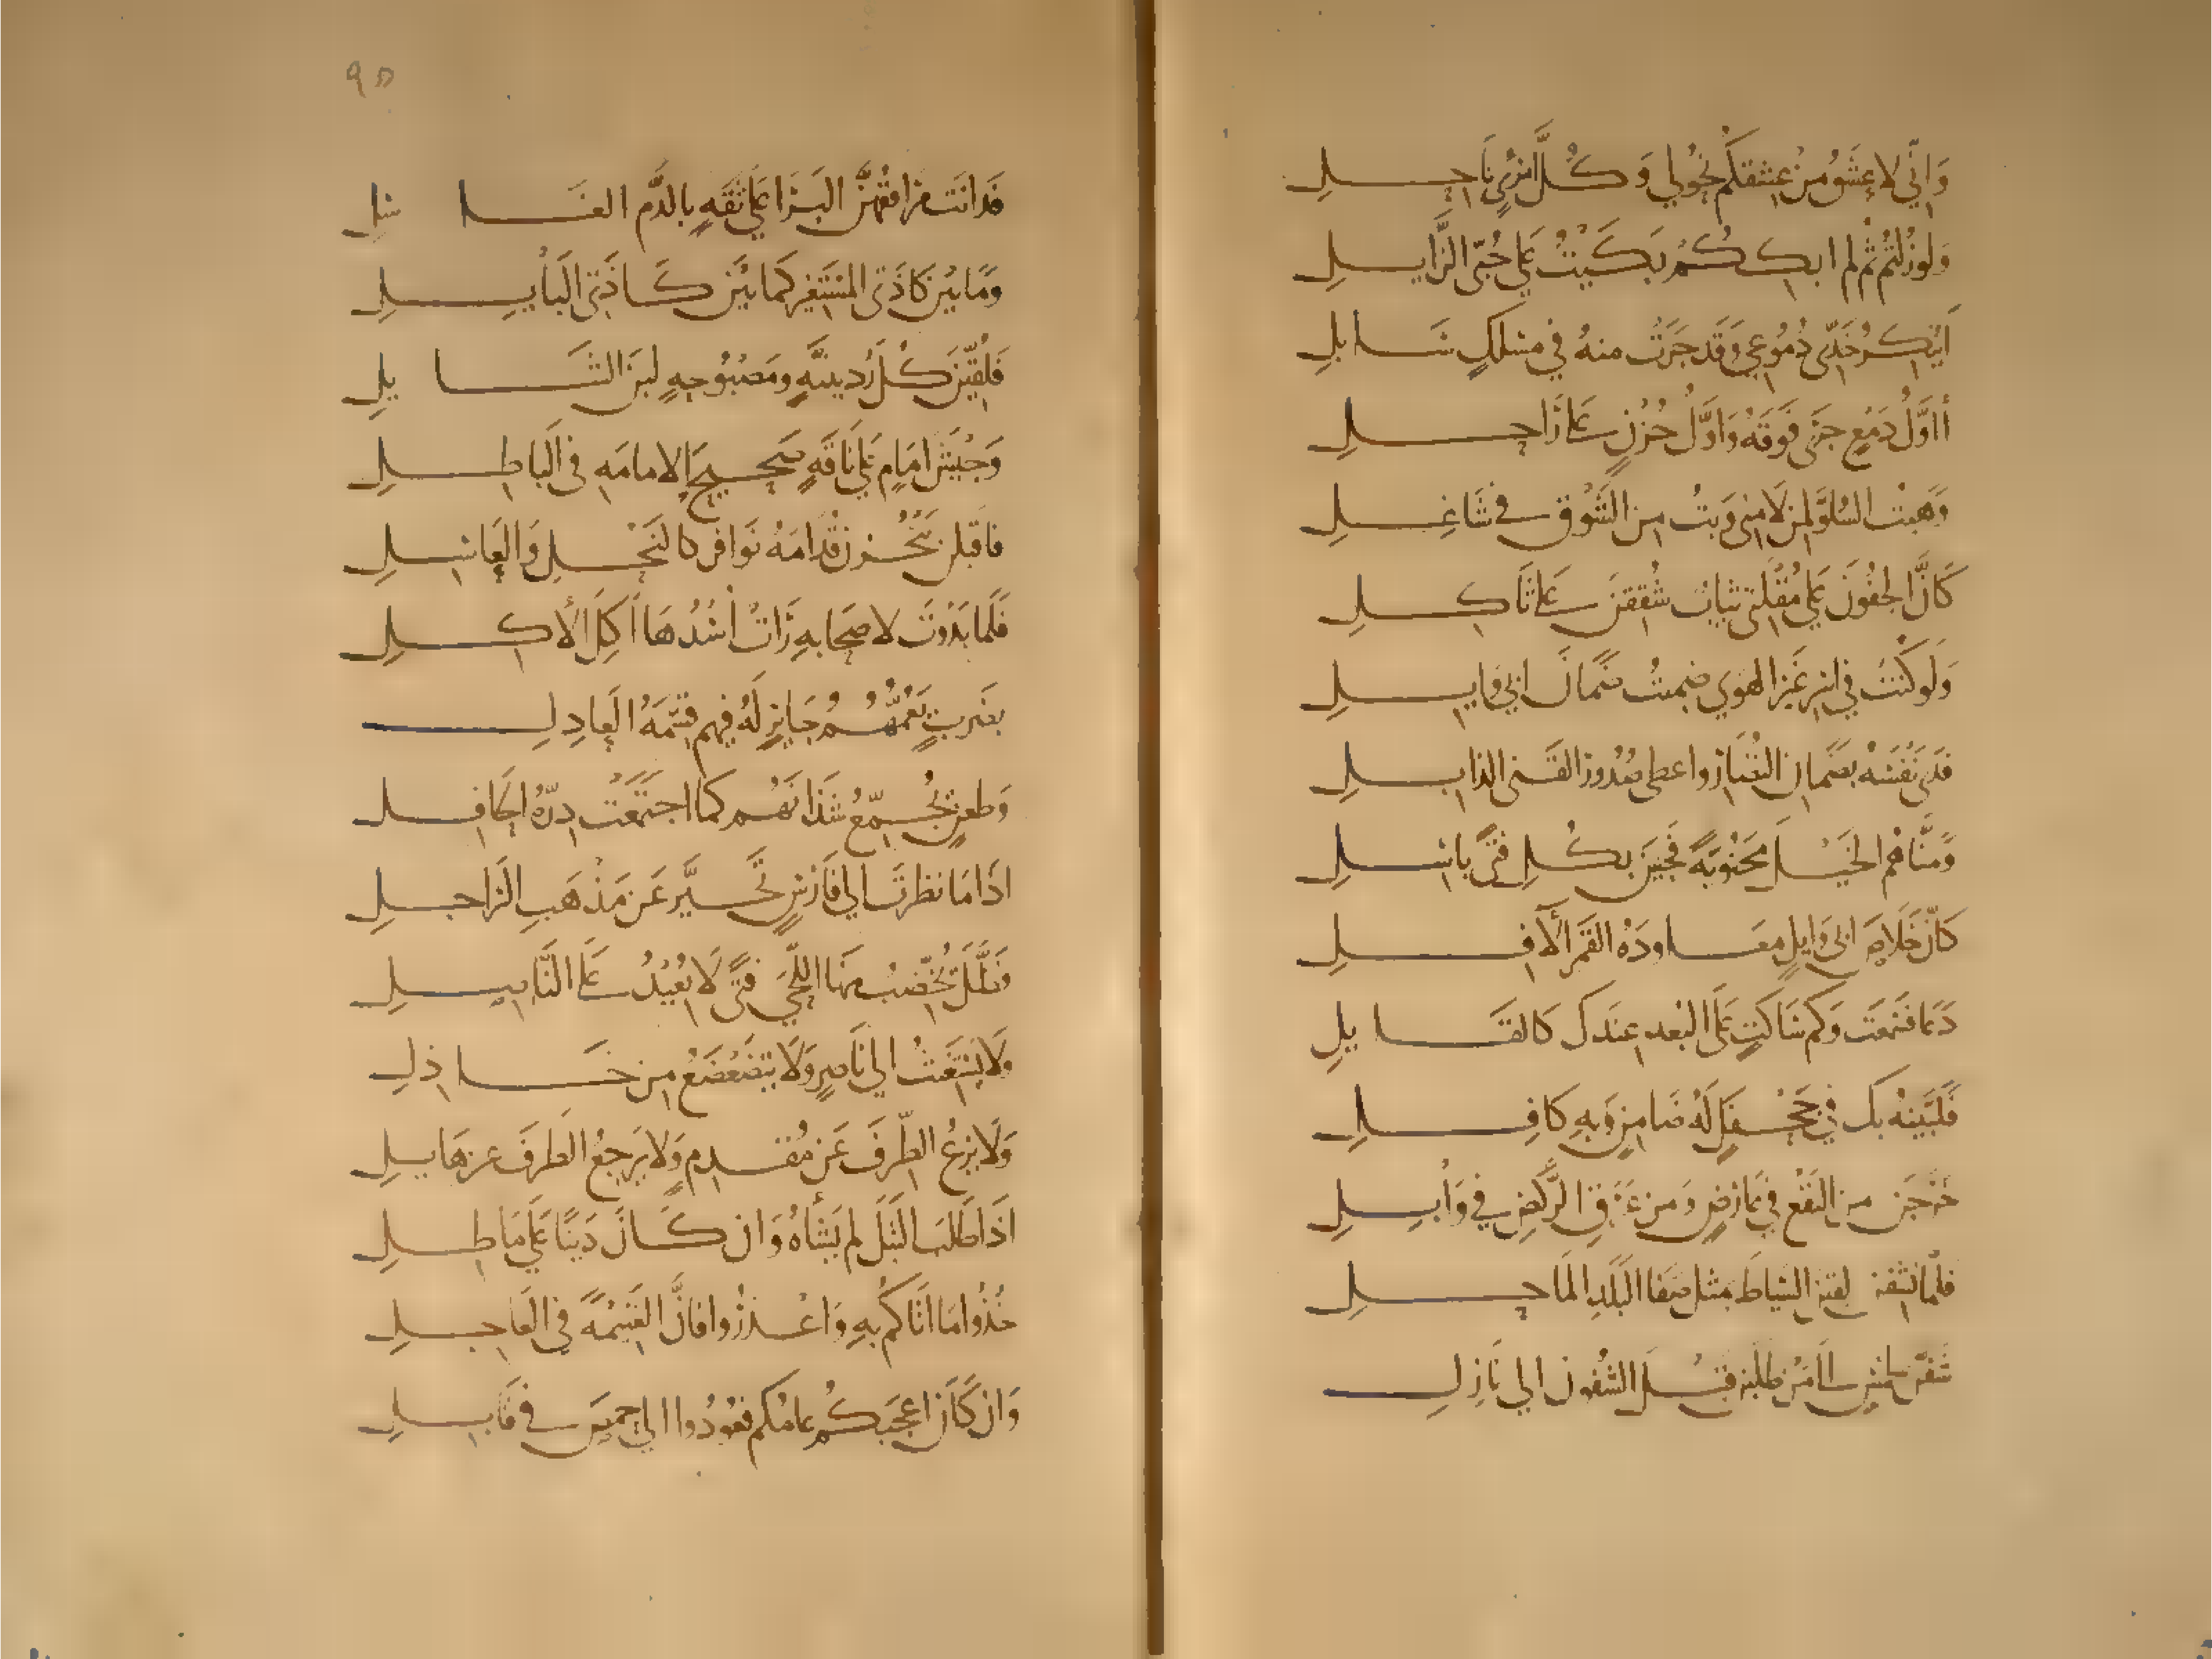 وَاِنِّي لاَعِشَقُ مِنْ عِشقكُم نُحُولي وَكُلَّ امْرِئٍ نَاحِلِ
وَلَو زُلتُمُ ثُم لم ابكِكُمُ بَكَيْتُ عَلي حُبّى الزَّايلِ
اَيُنكِرُ خَدّى دُمُوعي وَقَد جَرَتْ منهُ في مسْلَكٍ سَابلِ
أاَوَّلُ دَمْعٍ جَرَى فَوقَهُ وَاَوَّلُ حُزْنٍ عَلى رَاحِلِ
وَهَبْت السُلوَّ لِمَن لاَمَنى وَبتُ مِن الشَّوْقِ في شَاغِلِ
كَانَّ الجفُونَ عَلي مُقْلَتى ثيابٌ شُقِقنَ عَلى ثَاكِلِ
وَلَو كُنْتُ في اسرِ غَيرِ الهَوي ضمِنتُ ضَمَانَ ابي وَايلِ
فَدَى نَفْسَهُ بضَمَانِ النُّضَارِ وَاعطى صُدُورَ القَنى الذابلِ
وَمَنَّاهُم الخَيْلَ مَجْنُوبَةً فَجِينَ بكُلِ فتًى باسلِ
كَانَّ خَلاَصَ ابى وَايلٍ معَاودَةُ القَمَر الآفِلِ
دَعَا فَسَمعتَ وَكم سَاكتٍ عَلَى البُعدِ عِندَكَ كَالقَايلِ
فَلَبَّيتَهُ بكَ في جَحْفَلٍ لَهُ ضَامِنٍ وَبهِ كَافِلِ
خَرَجنَ منَ النَقْع في عَارِضٍ وَمن عَرَقِ الرَّكضِ في وَابلِ
فلمّا نشِفنَ لَقينَ السّيَاطَ بمثل صَفا البَلَدِ المَاحِلِ
شَفَنَّ لخمسٍ الى مَن طَلَبْنَ قُبَيْلَ الشُفونِ الى نَازلِ
٩٥
فَدانَت مرَافقُهُنَّ البَرَا عَلى ثقَهٍ بالدَّم الغَاسِلِ
وَمَا بَيْنَ كَاذَتَى المسْتَغِير كَمَا بَيْنَ كَاذَتَى البَائِلِ
فَلُقِّينَ كُلَّ رُدينيَّةٍ وَمَصْبُوحَةٍ لبَنَ الشَايلِ
وَجَيْشَ امَامٍ عَلي نَاقَةٍ صَحيحِ الامَامَهِ في البَاطِلِ
فاقبَلنَ يَنْحَزنَ قُدَامَهُ نَوَافرَ كالنَحْلِ وَالعَاسِلِ
فَلَما بَدَوْتَ لاصحَابهِ رَاتْ اُسْدُهَا اَكِلَ الأكِلِ
بضَربٍ يَعُمُّهُمُ جَايِرٍ لَهُ فيهم قِسْمَهُ العَادِلِ
وَطعنٍ يُجَمِّعُ شُذَانَهُم كما اجتَمَعَت دِرّهُ الحَافِلِ
اذَا مَا نظرتَ الي فَارسٍ تَحَيَّر عَن مَذْهَبِ الرَاجلِ
فَظَلَّ يُخَضِّبُ مِنهَا اللِّحَى فَتًى لاَ يُعِيْدُ عَلَى النَّاصِلِ
وَلاَ يَسْتَغيثُ الي نَاصِرٍ وَلاَ يتَضَعْضَعُ مِن خَاذِلِ
وَلاَ يزعُ الطِّرفَ عَن مُقدِمٍ وَلاَ يَرجِعُ الطَرفَ عن هَايلِ
اذَا طَلَبَ التَبْلَ لم يَشْأهُ وَان كَانَ دَينًا عَلي مَاطِلِ
خُذُوا مَا اتَاكُم بهِ وَاعْذرُوا فَانَّ الغَنيْمَةَ في العَاجِلِ
وَان كَانَ اعجَبَكُم عَامُكُم فَعُودُوا الي حِمصَ في قَابلِ